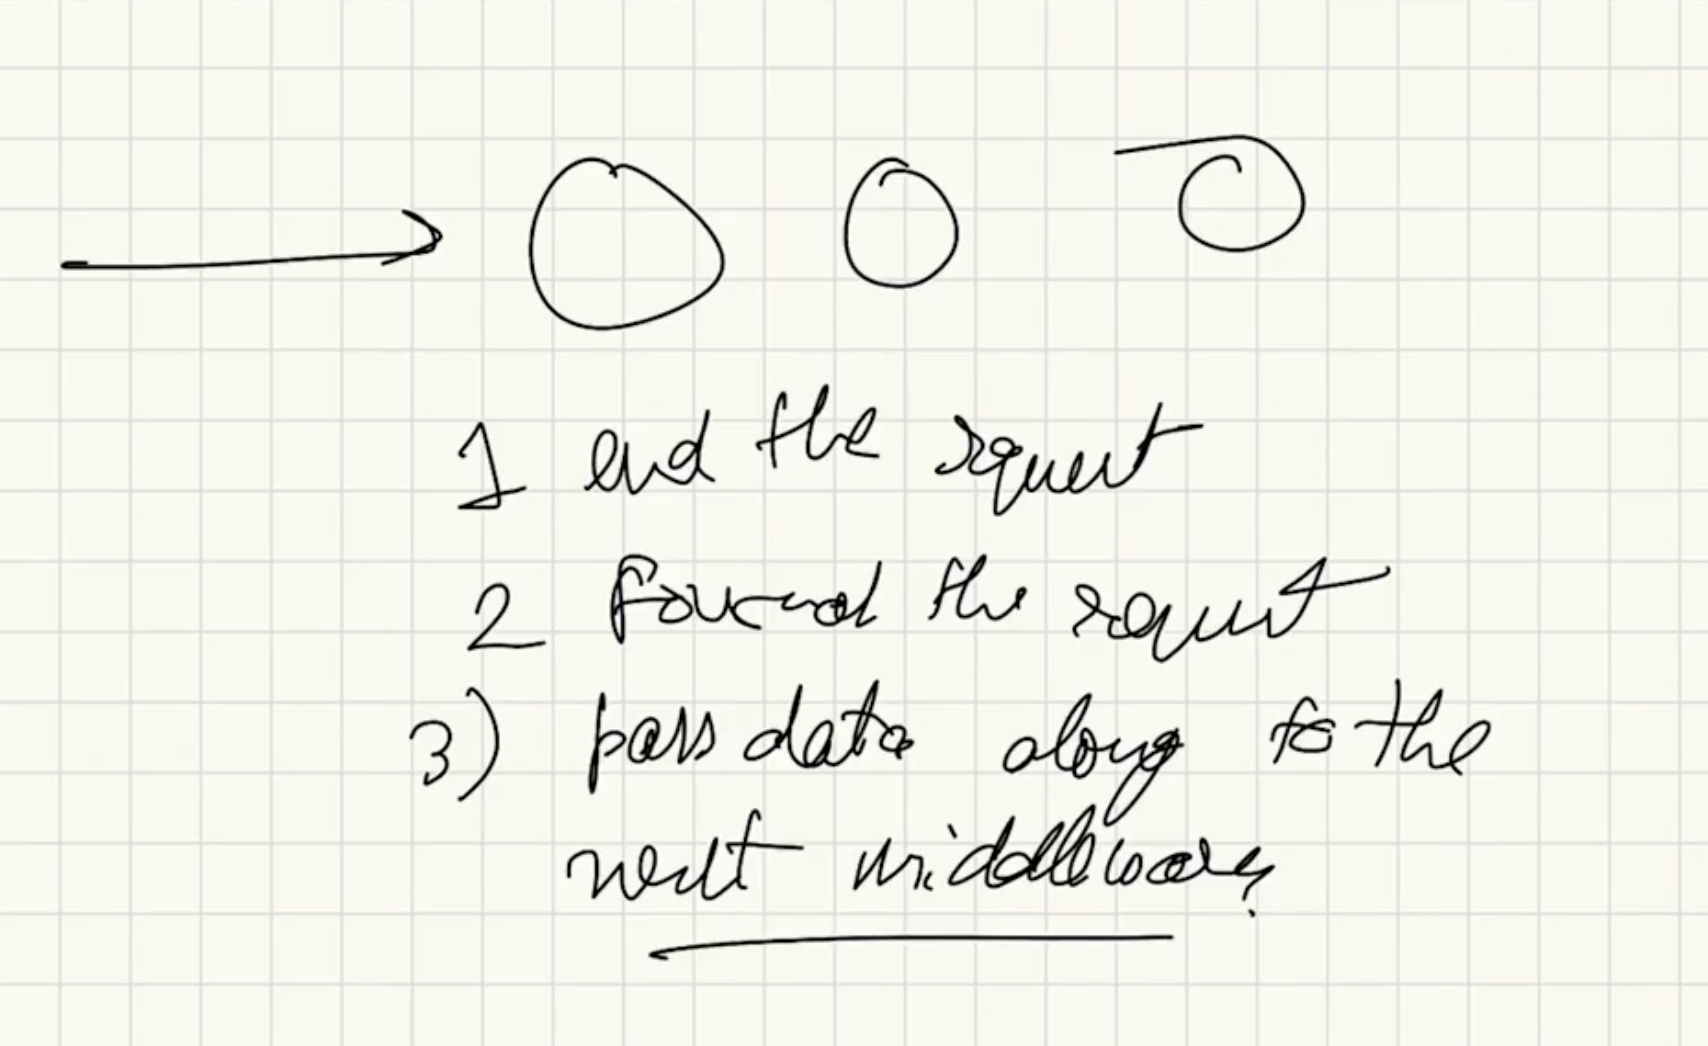 1 end the request
2 forward the request
3) pass data along to the
next middleware